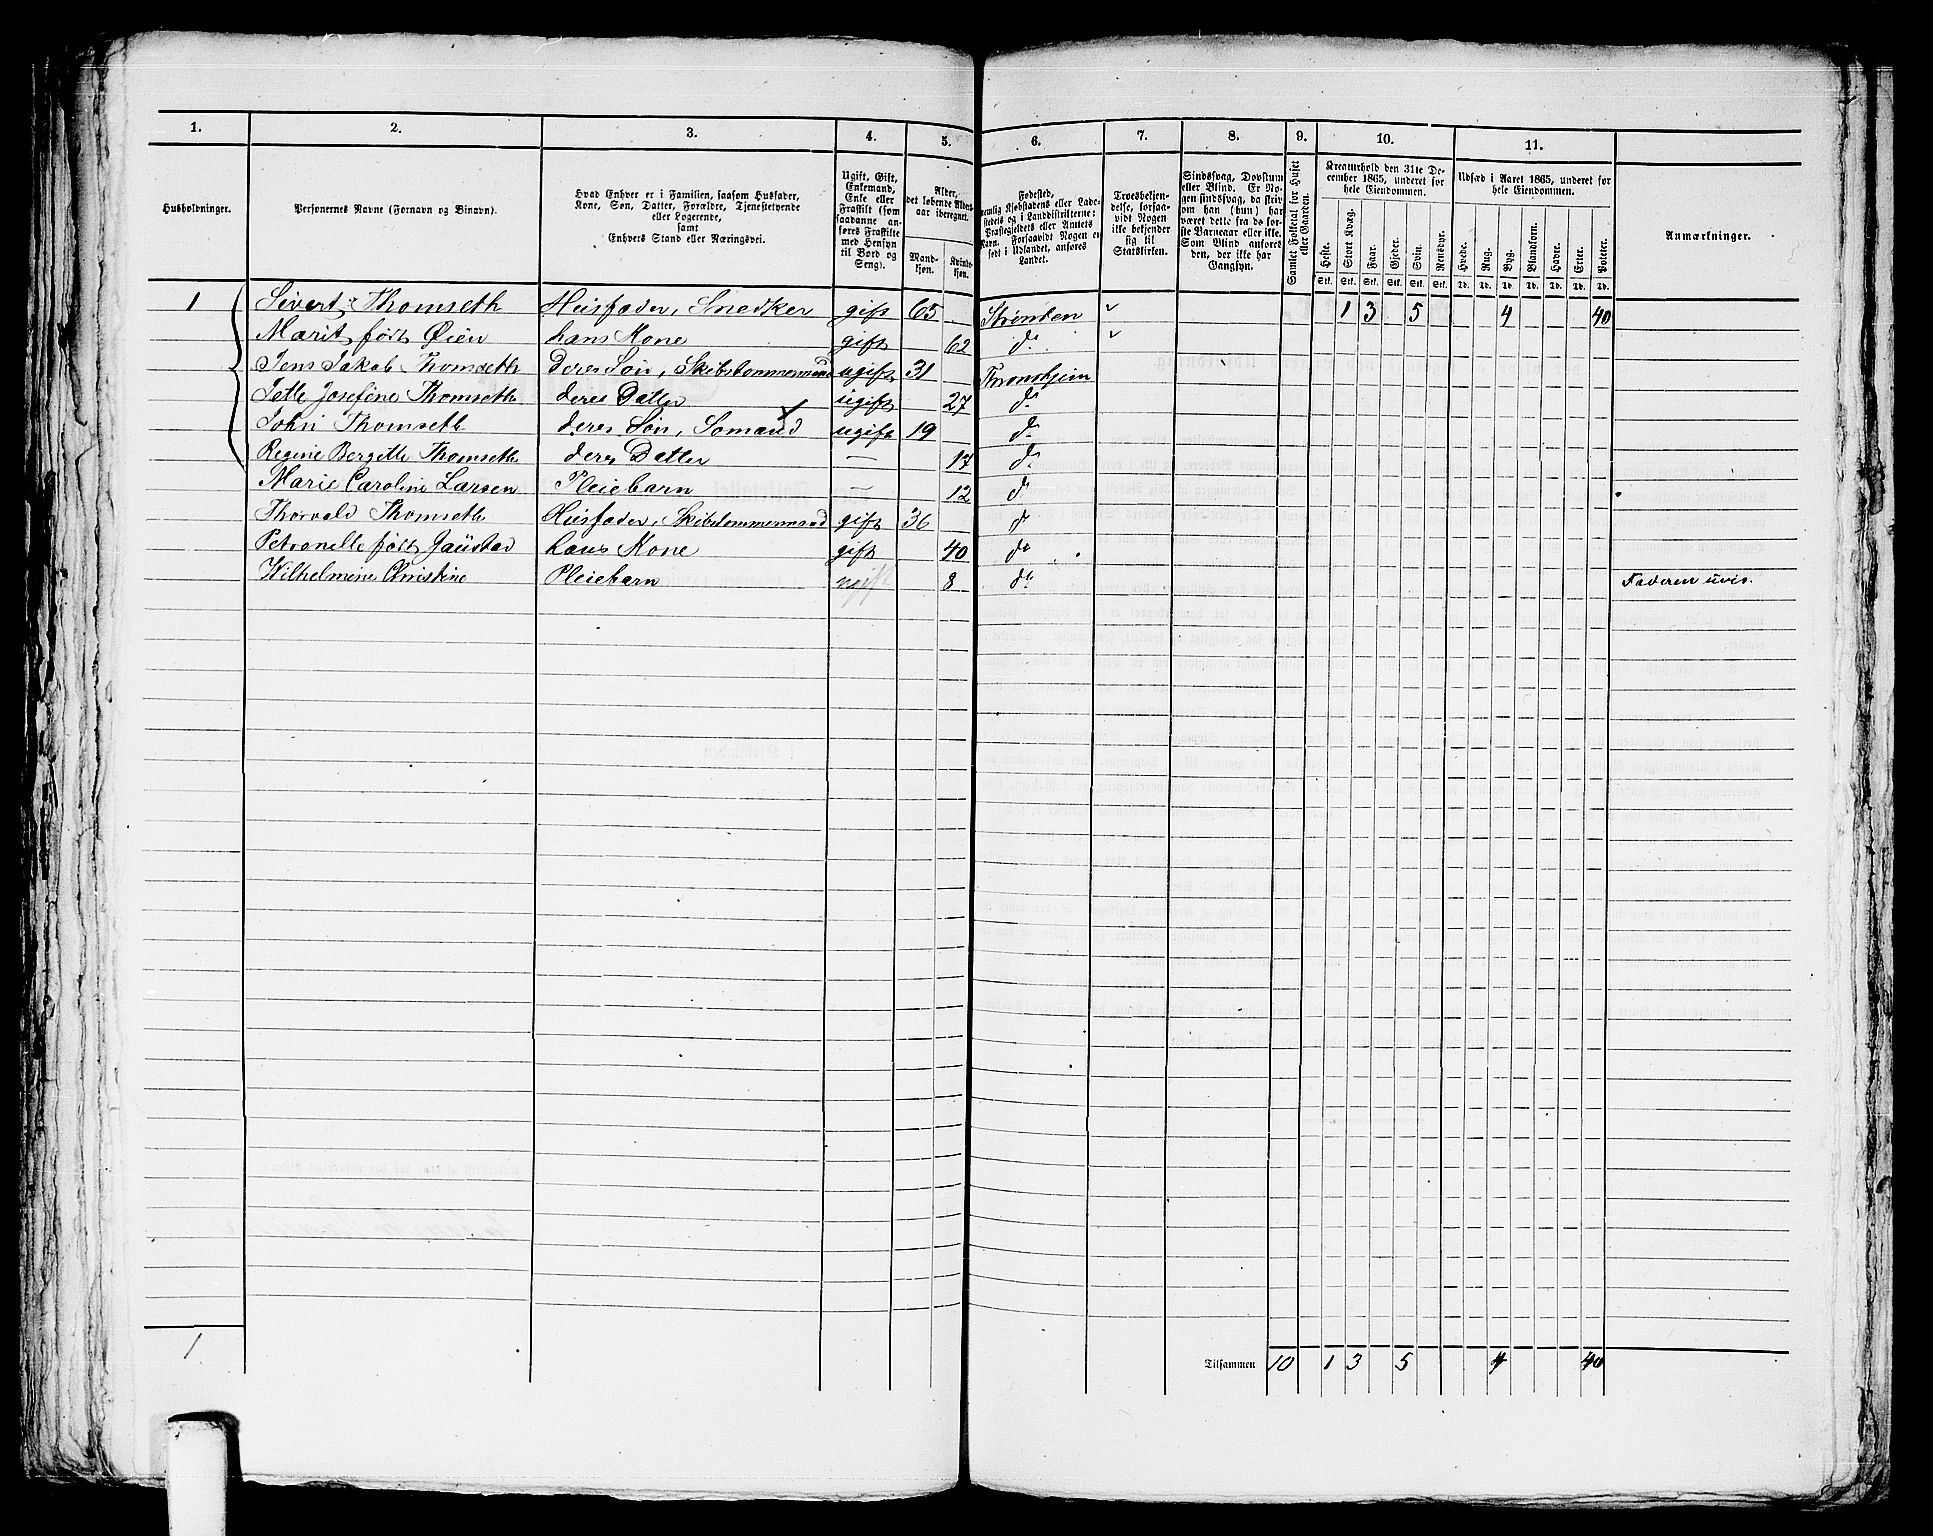 1. 2. 3. 4. 5. 6. 7. 8. 9. 10. 11.
Husholdninger.
Personernes Navne (Fornavn og Binavn).
Hvad Enhver er i Familien, saasom Husfader,
Kone, Søn, Datter, Forældre, Tjenestetyende
eller Logerende,
samt
Enhvers Stand eller Næringsvei.
Ugift, Gift,
Enkemand,
Enke eller
Fraskilt (som
saadanne an-
føres Fraskilte
med Hensyn
til Bord og
Seng).
Alder,
det løbende Alders-
aar iberegnet.
Mand-
kjøn.
Kvinde-
kjøn.
Fødested,
nemlig Kjøbstadens eller Lade-
stedets og i Landdistrikterne:
Præstegjeldets eller Amtets
Navn. Forsaavidt Nogen er
født i Udlandet, anføres
Landet.
Troesbekjen-
delse, forsaa-
vidt Nogen
ikke bekjender
sig til
Statskirken.
Sindssvag, Døvstum
eller Blind. Er No-
gen sindssvag, da skriv
om han (hun) har
været dette fra de før-
ste Barneaar eller ikke.
Som Blind anføres
den, der ikke har
Gangsyn.
Samlet Folketal for Huset
eller Gaarden.
Kreaturhold den 31te De-
cember 1865, underet for
hele Eiendommen.
Heste. Stort Kvæg. Faar. Gjeder. Svin. Rensdyr.
Stk. Stk. Stk. Stk. Stk. Stk.
Udsæd i Aaret 1865, underet for
hele Eiendommen.
Hvede. Rug. Byg. Blandkorn. Havre. Erter. Poteter.
Td. Td. Td. Td. Td. Td. Td.
Anmærkninger.
1 Sivert Thomseth Husfader, Snedker gift 65 Strinden 1 3 5 4 40
Marit født Øien hans Kone gift 62 do
Jens Jakob Thomseth deres Søn, Skibstømmermand ugift 31 Thronhjem
Jette Josefine Thomseth deres Datter ugift 27 do
John Thomseth deres Søn, Sømand ugift 19 do
Regine Bergitte Thomseth deres Datter — 17 do
Marie Caroline Larsen Pleiebarn — 12 do
Thorvald Thomseth Husfader, Skibstømmermand gift 36 do
Petronelle født Gaustad hans Kone gift 40 do
Wilhelmine Christine Pleiebarn ugift 8 do Faderen uvis.
1 Tilsammen 10 1 3 5 4 40